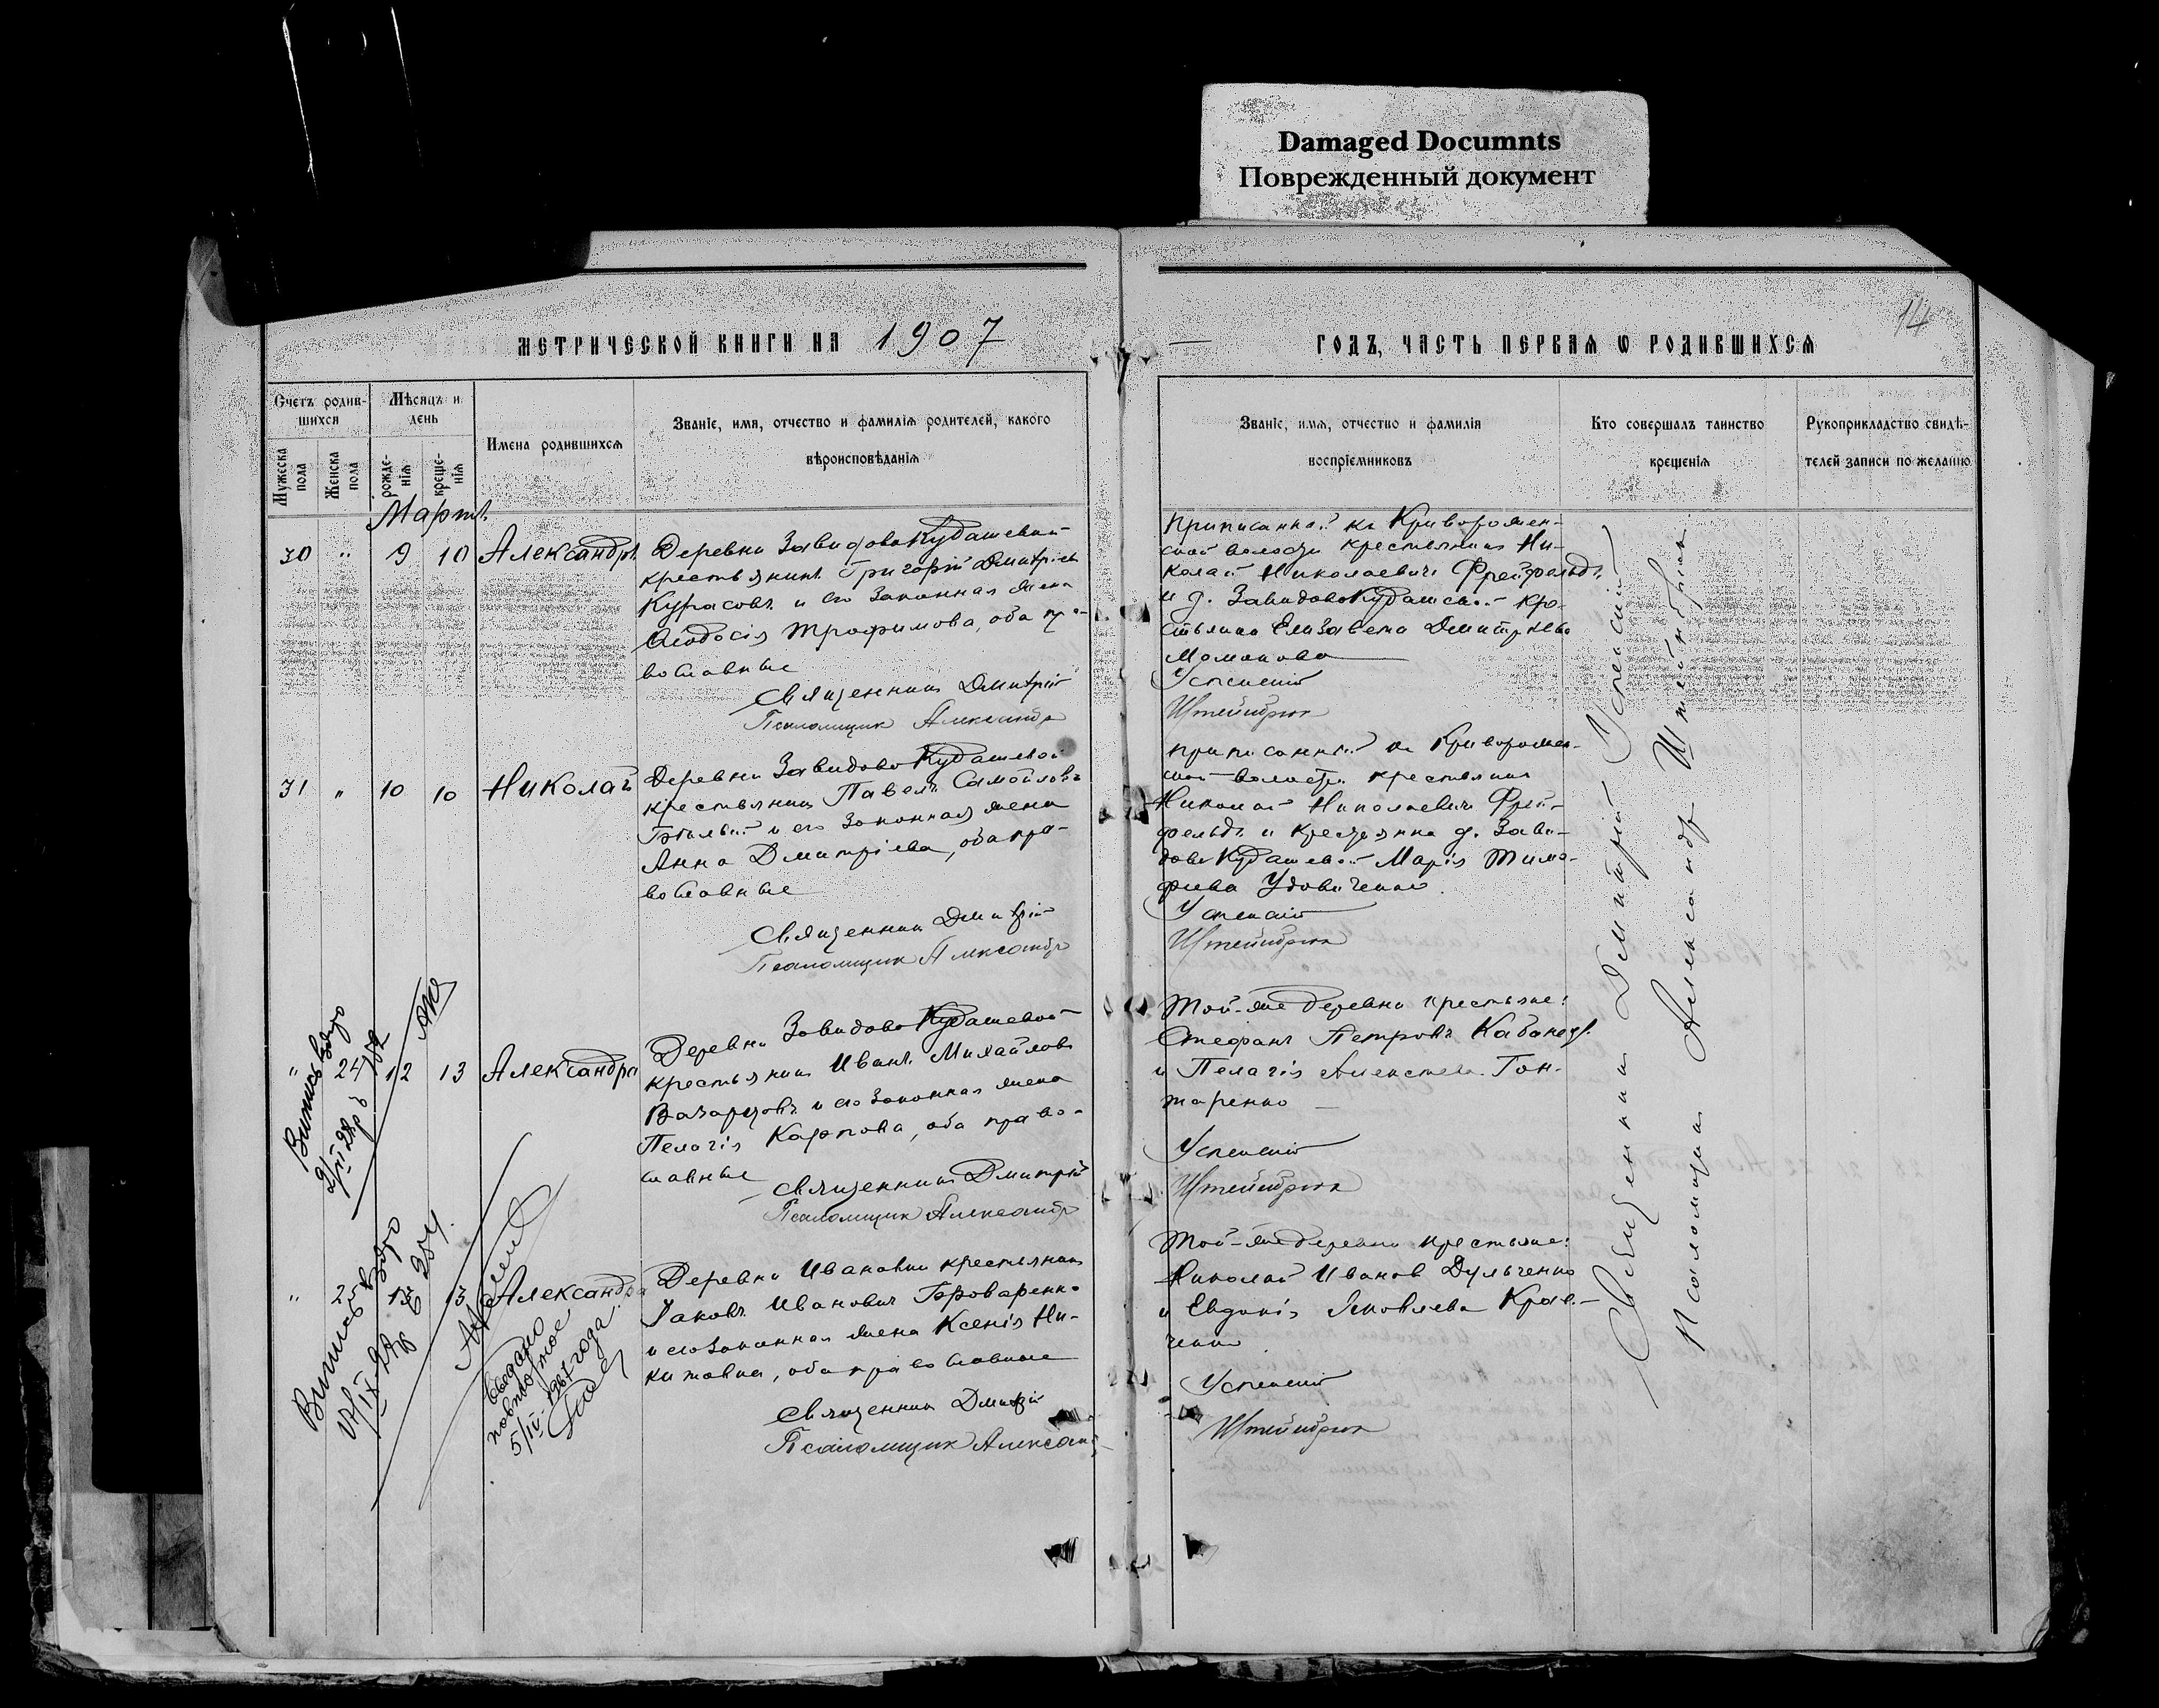 Damaged Documnts
Поврежденный документ
14
МЕТРИЧЕСКОЙ КНИГИ НА 1907
ГОДЪ, ЧАСТЬ ПЕРВАЯ Ѡ РОДИВШИХСЯ
Счетъ родив-
шихся
Мѣсяцъ и
день
Мужеска
пола
Женска
пола
рожде-
нія
креще-
нія
Имена родившихся
Званіе, имя, отчество и фамилія родителей, какого
вѣроисповѣданія
Званіе, имя, отчество и фамилія
воспріемниковъ
Кто совершалъ таинство
крещенія
Рукоприкладство свидѣ-
телей записи по желанію
Мартъ
30 " 9 10 Александръ
Деревни Завидово Кудашевой
крестьянинъ Григорій Дмитріевъ
и его законная жена
Ѳеодосія Трофимова, оба пра-
вославные
Священникъ Дмитрій
Псаломщикъ Александръ
Приписанный къ
ской волости крестьянинъ Ни-
колай Николаевичъ Фрейфельдъ
и д. Завидово Кудашевой кре-
стьянка Елизавета Дмитріева
Успенскій
Штейнбрюк
31 " 10 10 Николай
Деревни Завидово Кудашевой
крестьянинъ Павелъ Самойловъ
и его законная жена
Анна Дмитріева, оба пра-
вославные
Священникъ Дмитрій
Псаломщикъ Александръ
приписанный къ
ской волости крестьянинъ
Николай Николаевичъ Фрей-
фельдъ и крестьянка д. Зави-
дово Кудашевой Марія Тимо-
феева Удовиченко
Успенскій
Штейнбрюк
" 24 12 13 Александра
Деревни Завидово Кудашевой
крестьянинъ Иванъ Михайловъ
и его законная жена
Пелагія Карпова, оба право-
славные
Священникъ Дмитрій
Псаломщикъ Александръ
Той-же деревни крестьяне:
Стефанъ Петровъ Кабанецъ
и Пелагія Алексѣева Гон-
таренко
Успенскій
Штейнбрюк
" 25 13 13 Александра
Деревни Ивановки крестьянинъ
Іаковъ Ивановичъ Броваренко
и его законная жена Ксенія Ни-
китовна, оба православные
Священникъ Дмитрій
Псаломщикъ Александръ
Той-же деревни крестьяне:
Николай Иванов Дульченко
и Евдокія Яковлева Крав-
ченко
Успенскій
Штейнбрюк
Священникъ Дмитрій Успенскій
Псаломщикъ Александр Штейнбрюк
повторное
5/IV-1967 года